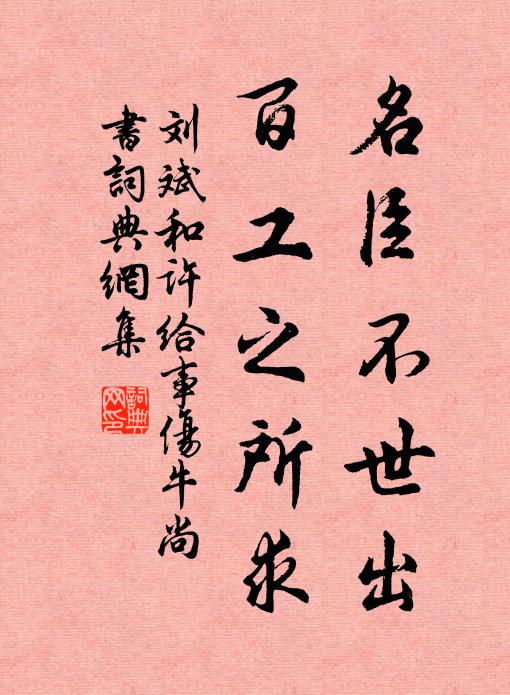 名臣不世出
百工之所求
刘斌和许给事傷牛尚
書詞典網集
詞典
网印